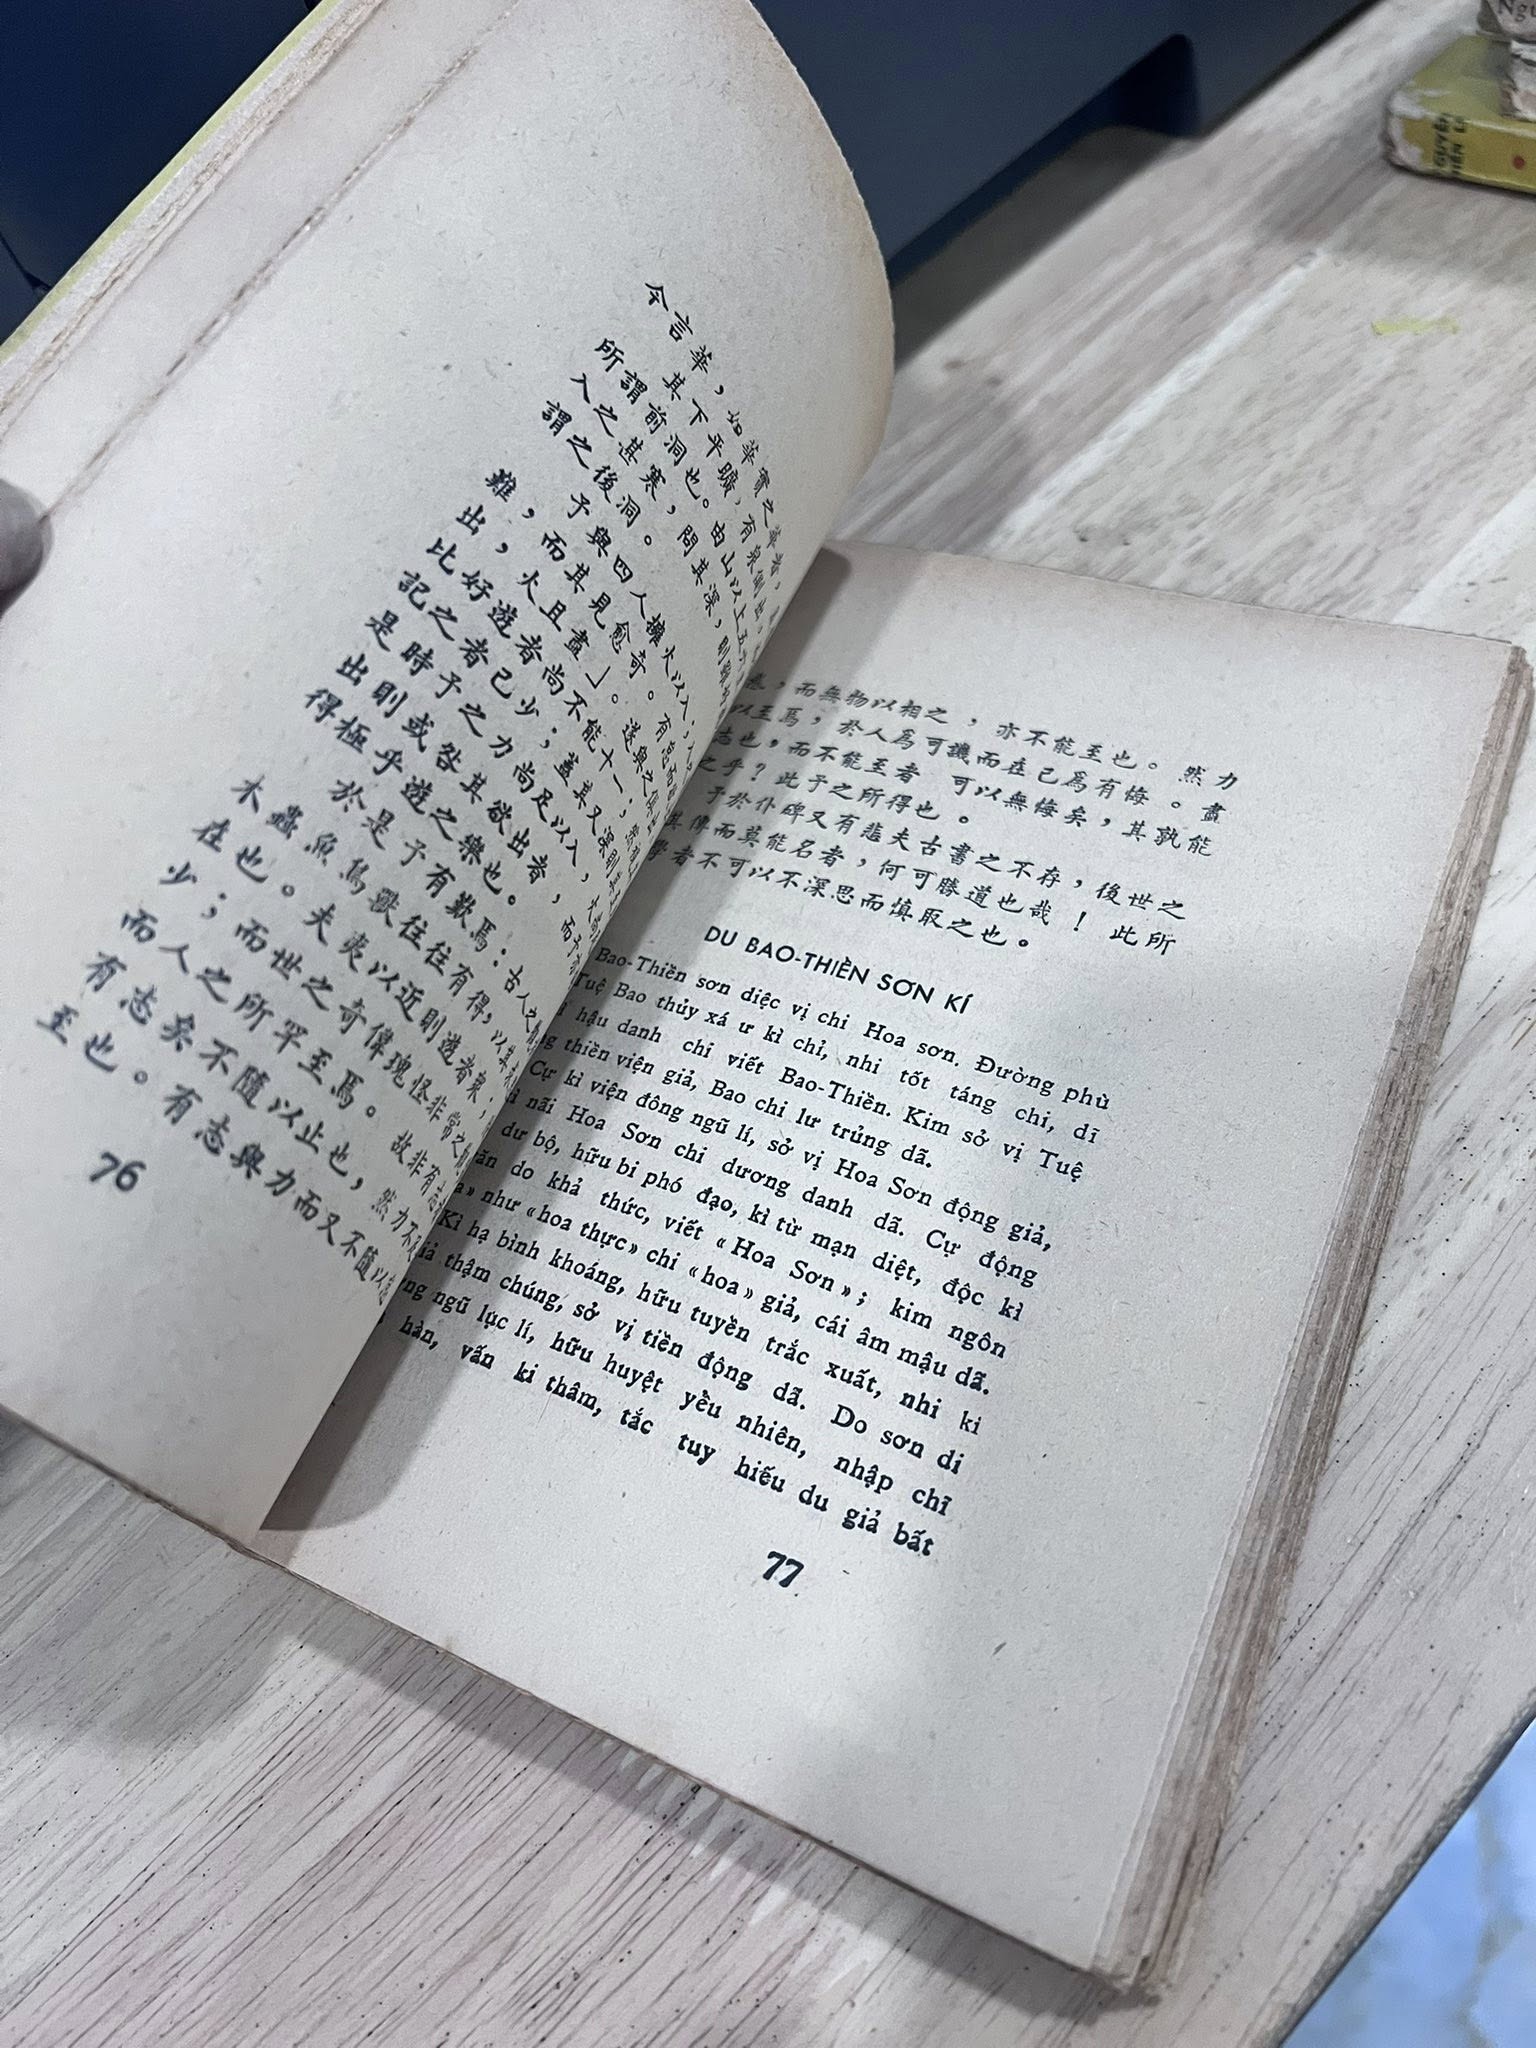 今言華，如華實之華者，
其下平曠，有泉側出，
所謂前洞也。由山以上五六
入之甚寒，問其深，則雖好
謂之後洞。
予與四人擁火以入；
難，而其見愈奇。有怠而
出，火且盡」。遂與之俱出
比好遊者尚不能十一；然視
記之者已少；蓋其又深則
是時予之力尚足以入，火尚
出則或咎其欲出者，而予亦
得極乎遊之樂也。
於是予有歎焉：古人之觀
木蟲魚鳥獸往往有得，以其求
在也。夫夷以近則遊者衆；
少；而世之奇偉瑰怪非常之觀
而人之所罕至焉。故非有志
有志矣不隨以止也，然力不
至也。有志與力而又不隨以怠
76
，而無物以相之，亦不能至也。然力
以至焉，於人爲可譏而在己爲有悔。盡
志也，而不能至者 可以無悔矣，其孰能
之乎？此予之所得也。
予於仆碑又有悲夫古書之不存，後世之
其傳而莫能名者，何可勝道也哉！此所
學者不可以不深思而慎取之也。
DU BAO-THIỀN SƠN KÍ
Bao-Thiền sơn diệc vị chi Hoa sơn. Đường phù
Tuệ Bao thủy xá ư kì chỉ, nhi tốt táng chi, dĩ
hậu danh chi viết Bao-Thiền. Kim sở vị Tuệ
thiền viện giả, Bao chi lư trủng dã.
Cự kì viện đông ngũ lí, sở vị Hoa Sơn động giả,
nãi Hoa Sơn chi dương danh dã. Cự động
dư bộ, hữu bi phó đạo, kì từ mạn diệt, độc kì
do khả thức, viết «Hoa Sơn»; kim ngôn
» như «hoa thực» chi «hoa» giả, cái âm mậu dã.
Kì hạ bình khoáng, hữu tuyền trắc xuất, nhi ki
thậm chúng, sở vị tiền động dã. Do sơn di
ngũ lục lí, hữu huyệt yều nhiên, nhập chĩ
hàn, vấn ki thâm, tắc tuy hiếu du giả bất
77